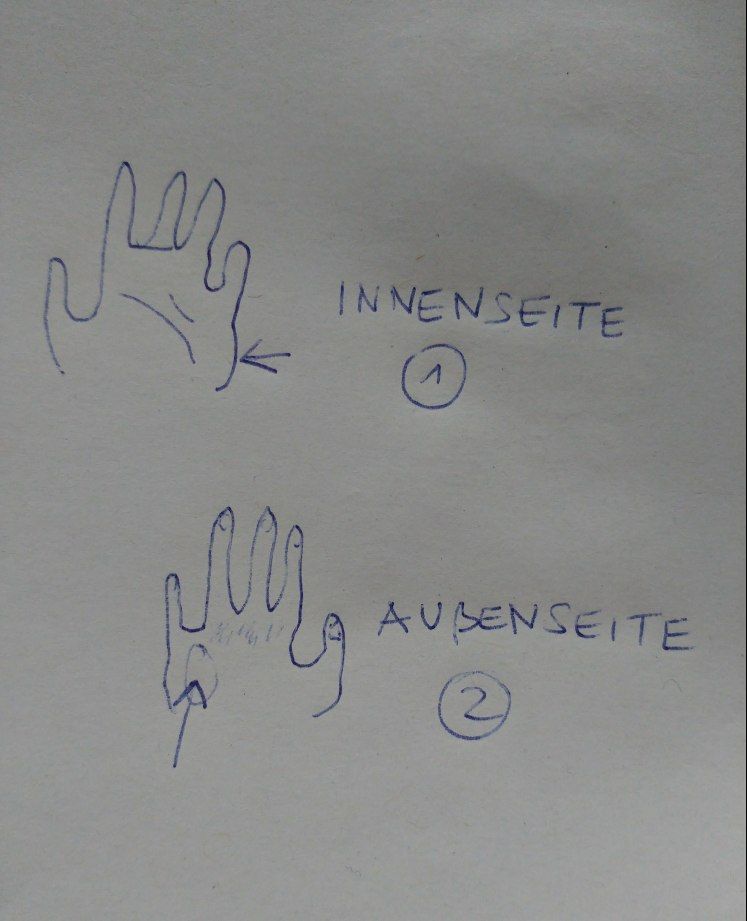 INNENSEITE
1
AUßENSEITE
2